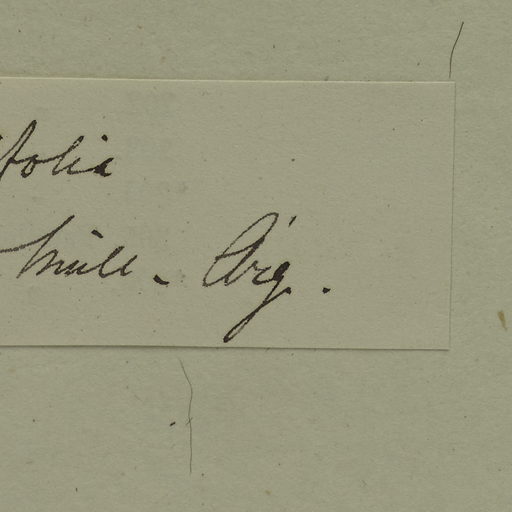 folia
Müll - Arg.